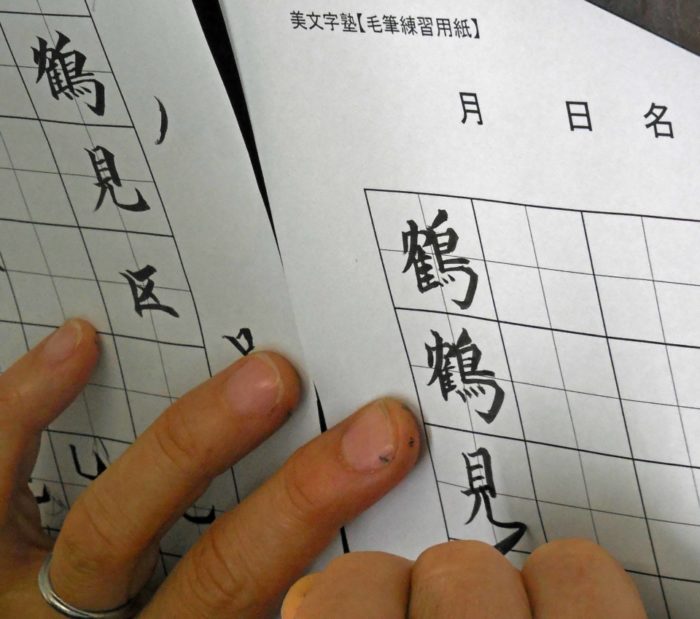 美文字塾【毛筆練習用紙】
月 日 名
鶴鶴見
鶴見区